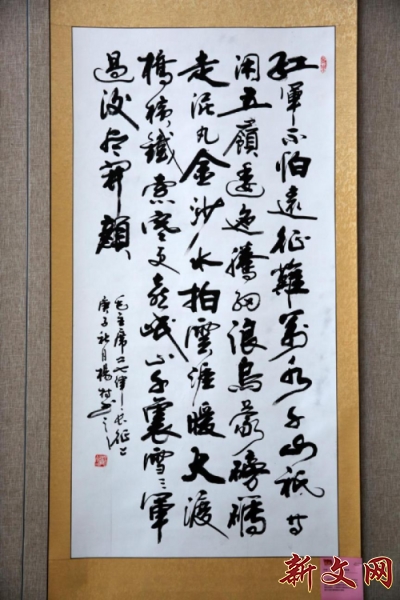 红軍不怕遠征難萬水千山祇等
闲五嶺逶迤騰细浪烏蒙磅礴
走泥丸金沙水拍雲涯暖大渡
橋横鐵索寒更喜岷山千裏雪三軍
過後尽開顔
毛主席《七律·长征》
庚子秋月楊
新文网